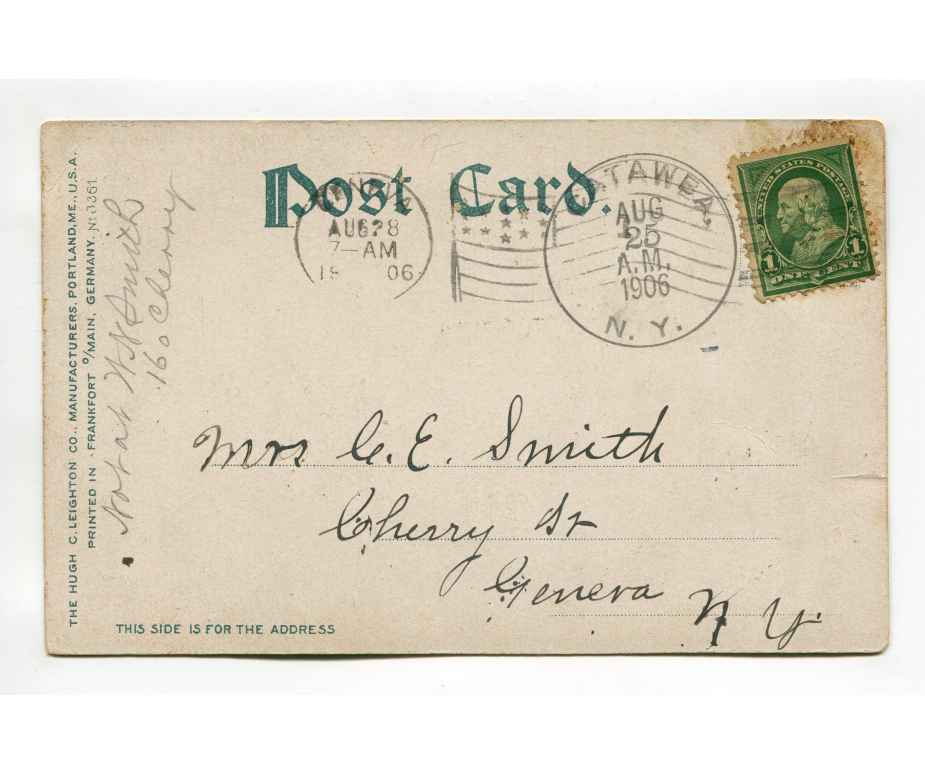 Post Card.
AUG 28
7–AM
06
TAWEA,
AUG
25
A.M.
1906
N. Y.
UNITED STATES POSTAGE
1 1
ONE CENT
Mrs C. E. Smith
Cherry St
Geneva N Y.
THIS SIDE IS FOR THE ADDRESS
THE HUGH C. LEIGHTON CO., MANUFACTURERS, PORTLAND, ME., U.S.A.
PRINTED IN FRANKFORT O/MAIN, GERMANY. No 3361
Not at W Smith
160 Cherry